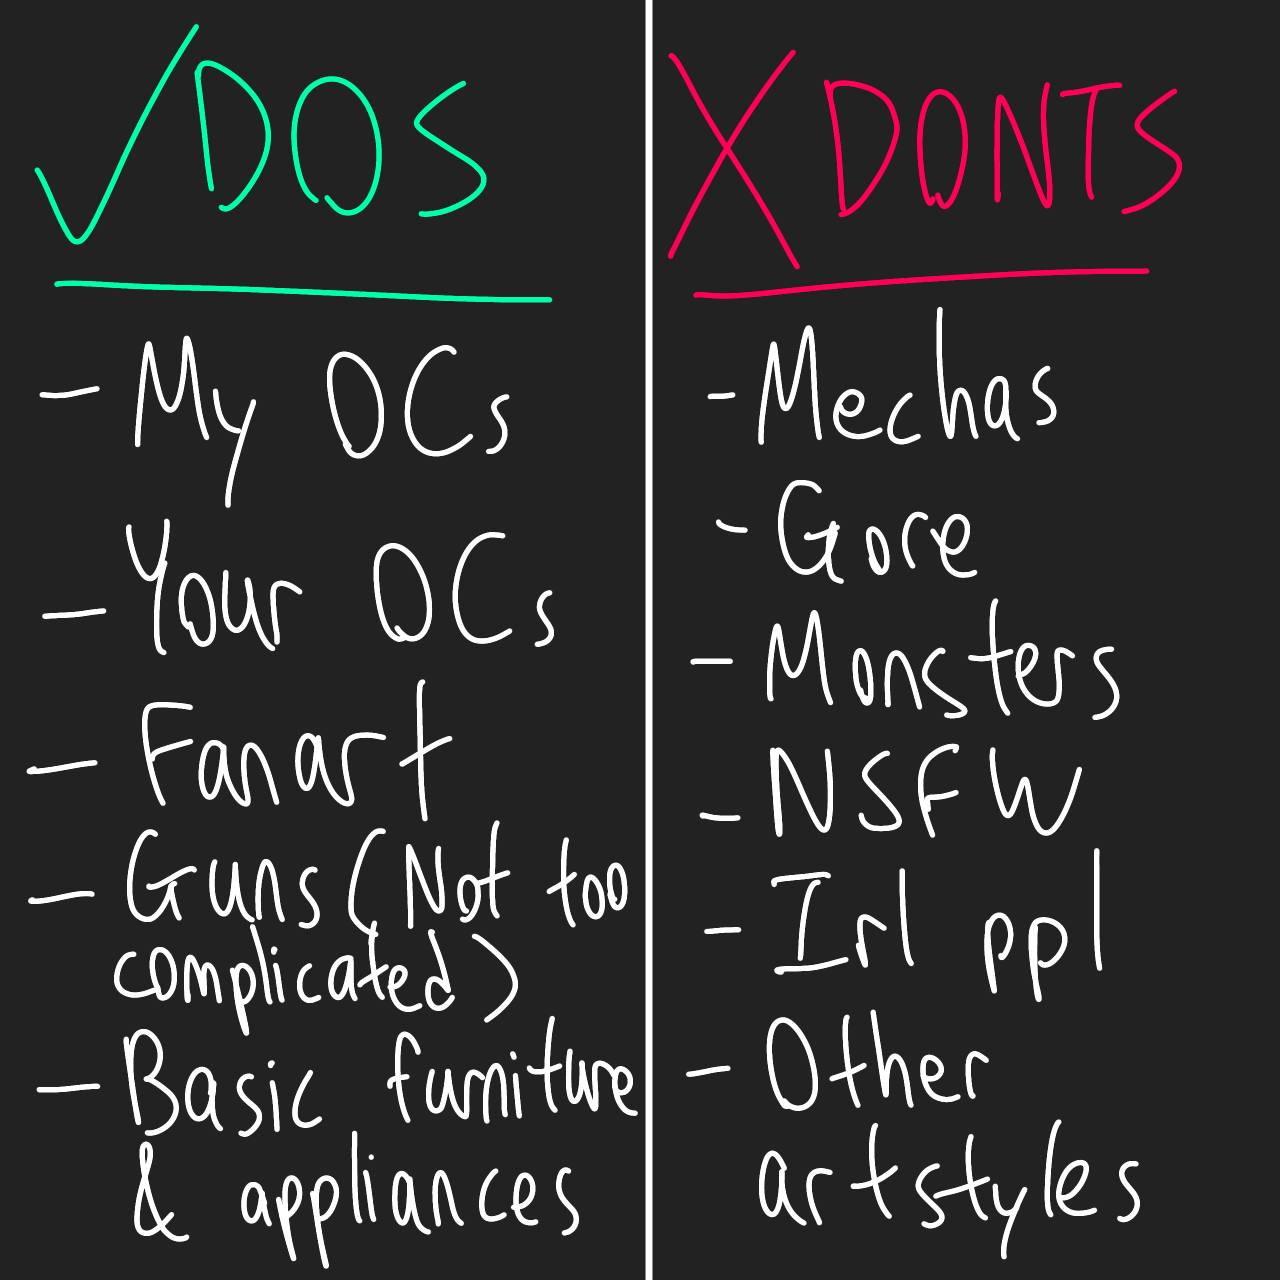 DOS
- My OCs
- Your OCs
- Fanart
- Guns (Not too
complicated)
- Basic furniture
& appliances
X DONTS
- Mechas
- Gore
- Monsters
- NSFW
- Irl ppl
- Other
artstyles